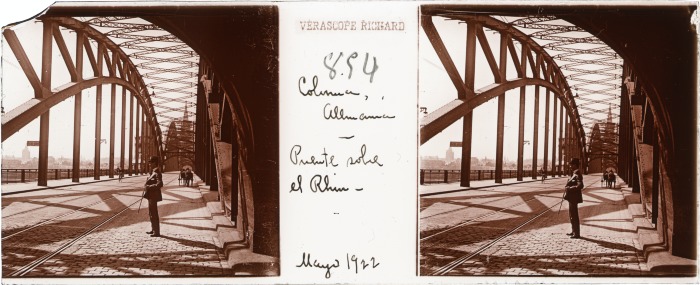 VERASCOPE RICHARD
894
Colonia,
Allmania
Puente sobre
el Rhin -
Mayo 1922